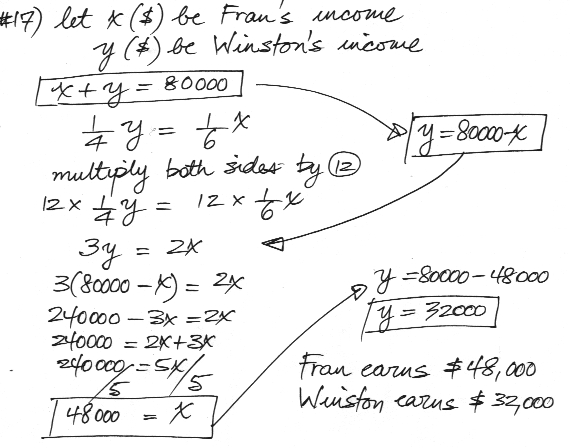 #17) let x ($) be Fran's income
y ($) be Winston's income
x + y = 80000
y = 80000-x
1/4 y = 1/6 x
multiply both sides by 12
12 x 1/4 y = 12 x 1/6 x
3y = 2x
3(80000 - x) = 2x
240000 - 3x = 2x
240000 = 2x+3x
240000/5 = 5x/5
48000 = x
y = 80000 - 48000
y = 32000
Fran earns $48,000
Winston earns $32,000